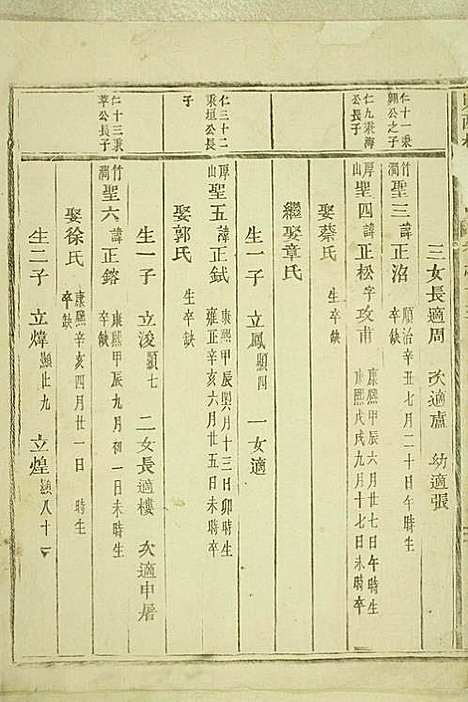 三女長適周 次適盧 幼適張
仁十一秉
翱公之子
竹澗 聖三 諱正洺 順治辛丑七月二十日午時生 卒缺
仁九秉海
公長子
厚山 聖四 諱正松 字攻甫 康熙甲辰六月廿七日午時生 康熙戊戌九月十七日未時卒
娶蔡氏 生卒缺
繼娶章氏
生一子 立鳳 顯四 一女適
仁三十二
秉垣公長
子
厚山 聖五 諱正鉽 康熙甲辰閏月十三日卯時生 雍正辛亥六月廿五日未時卒
娶郭氏 生卒缺
生一子 立浚 顯七 二女長適樓 次適申屠
仁十三秉
莘公長子
竹澗 聖六 諱正鎔 康熙甲辰九月初一日未時生 卒缺
娶徐氏 康熙辛亥四月廿一日 時生 卒缺
生二子 立煒 顯廿九 立煌 顯八十